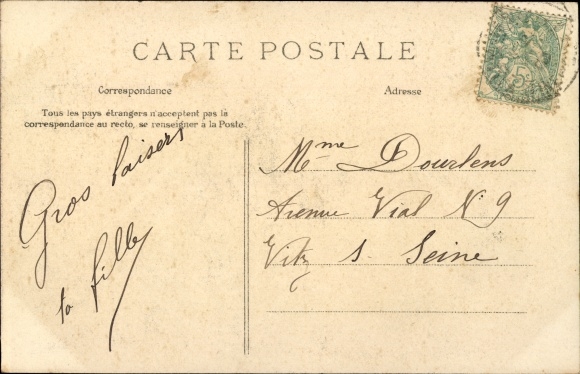 CARTE POSTALE
Correspondance
Tous les pays étrangers n'acceptent pas la
correspondance au recto, se renseigner à la Poste.
Adresse
Gros baisers
ta fille
Mme Dourlens
Avenue Vial N° 9
Vity s. Seine
5c